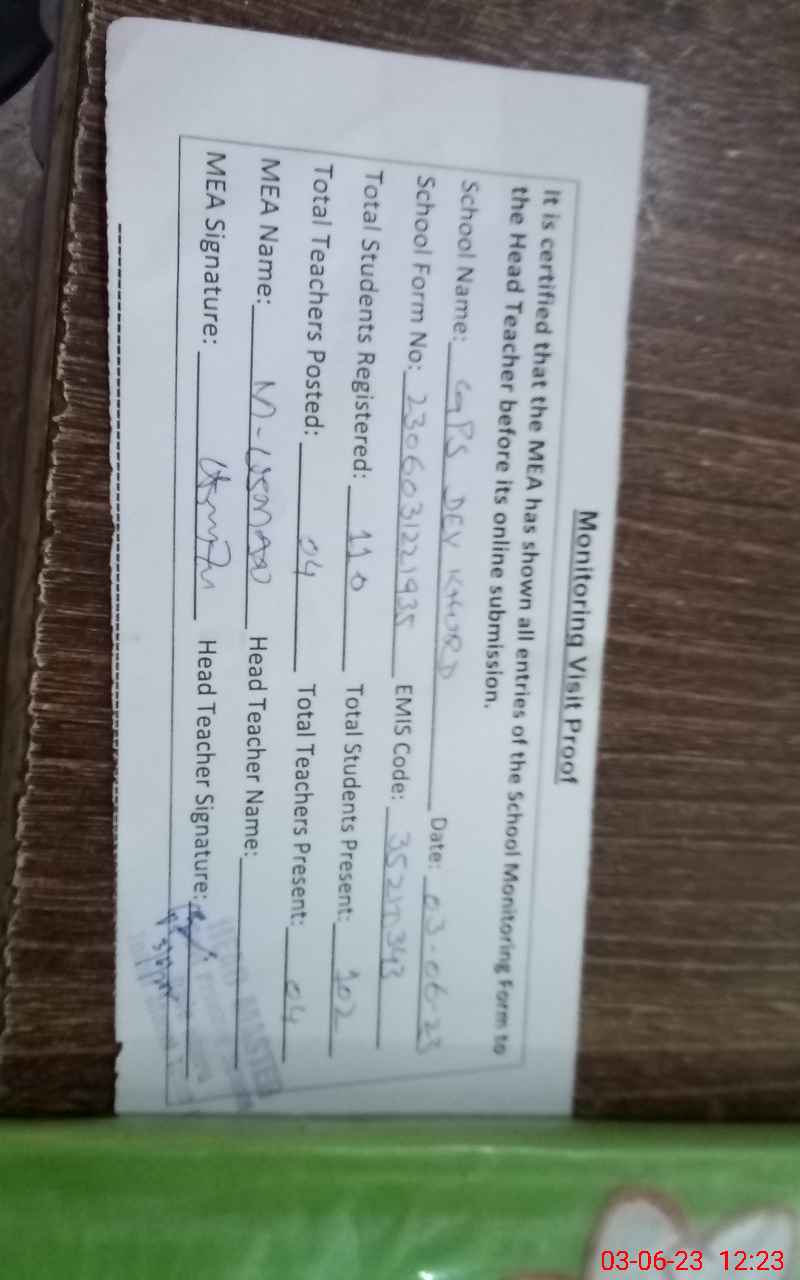 Monitoring Visit Proof
It is certified that the MEA has shown all entries of the School Monitoring Form to
the Head Teacher before its online submission.
School Name: GPS DEV KHURD Date: 03-06-23
School Form No: 2306031221935 EMIS Code:
Total Students Registered: 110 Total Students Present: 102
Total Teachers Posted: 04 Total Teachers Present: 04
MEA Name: M-USMAN Head Teacher Name:
MEA Signature: Head Teacher Signature:
HEAD MASTER
03-06-23 12:23